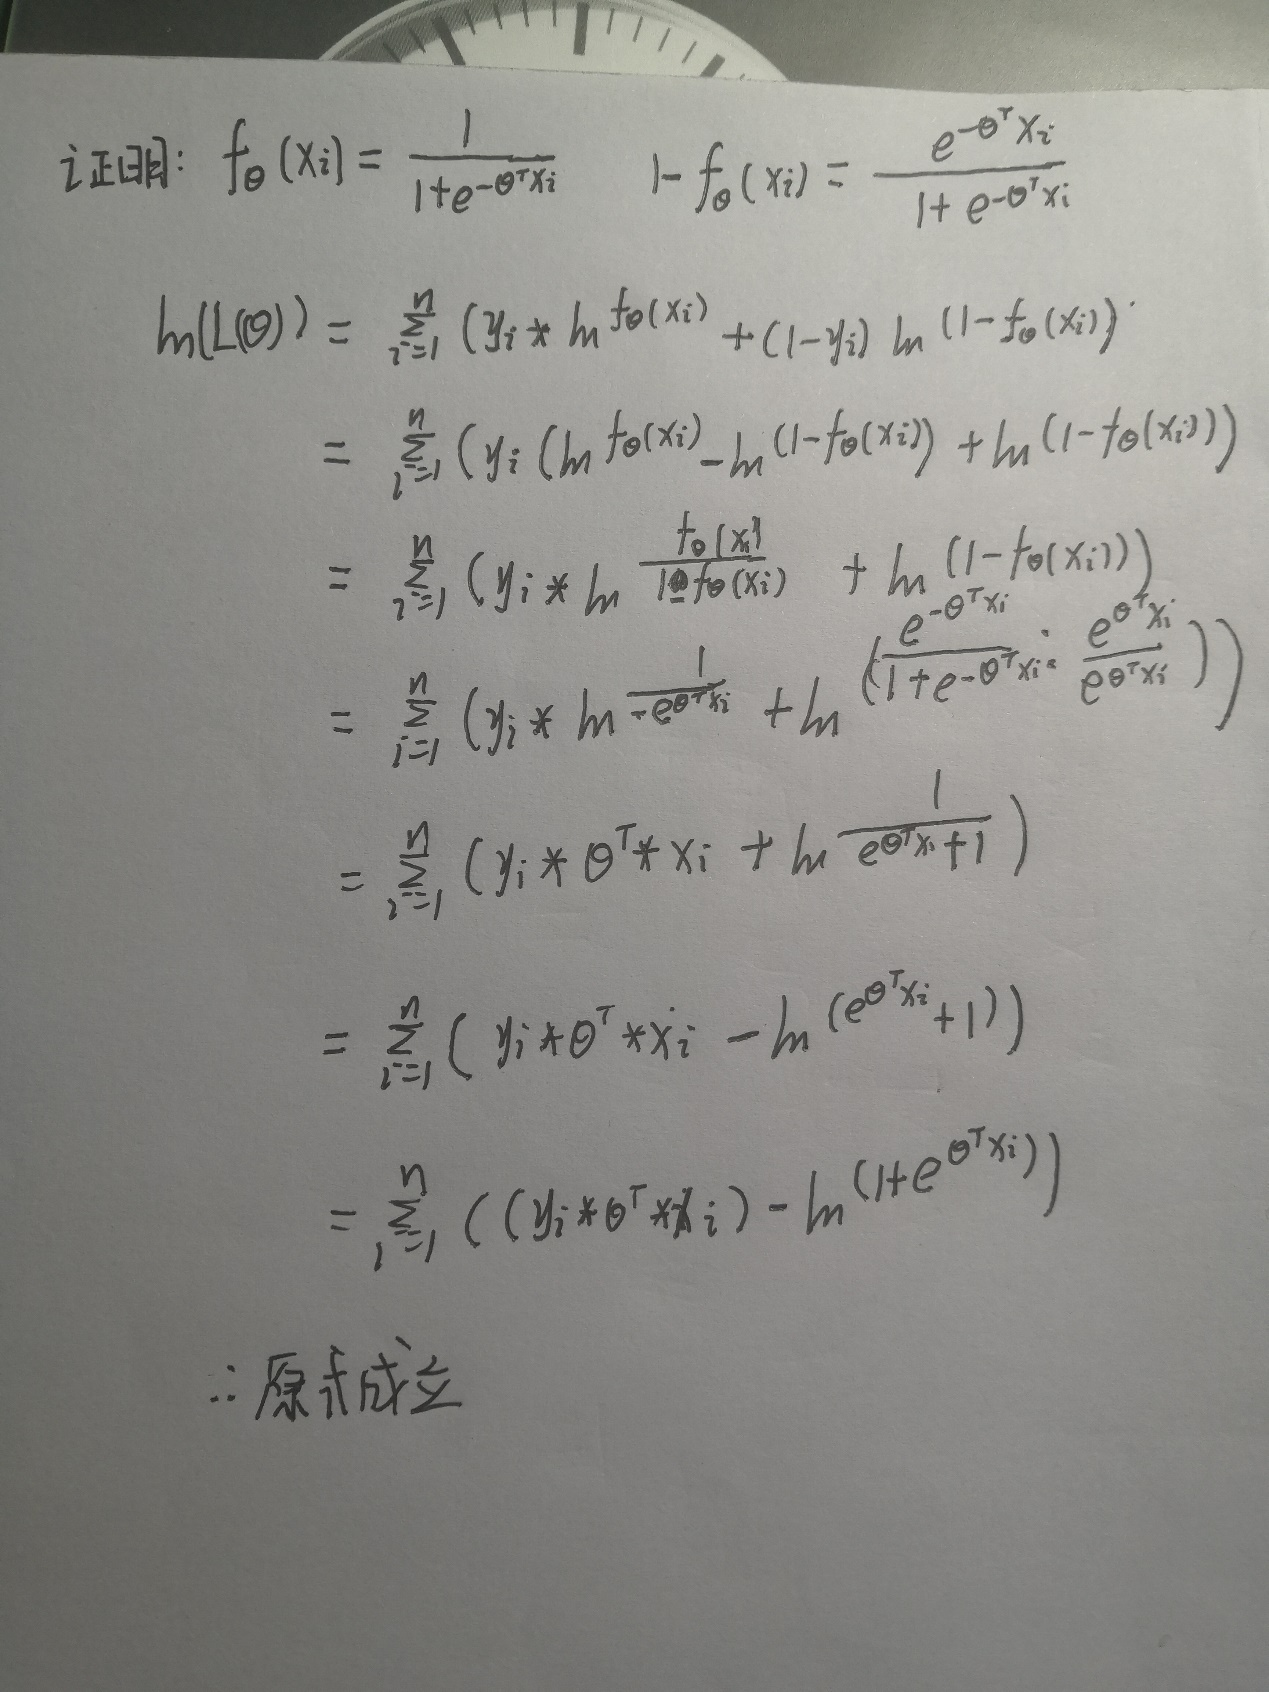 证明: fθ(xi) = 1/(1+e^(-θᵀxi))   1-fθ(xi) = e^(-θᵀxi)/(1+e^(-θᵀxi))
ln(L(θ)) = Σ_{i=1}^{n} (yi * ln fθ(xi) + (1-yi) ln (1-fθ(xi))
= Σ_{i=1}^{n} (yi (ln fθ(xi) - ln (1-fθ(xi)) + ln (1-fθ(xi)))
= Σ_{i=1}^{n} (yi * ln fθ(xi)/(1-fθ(xi)) + ln (1-fθ(xi)))
= Σ_{i=1}^{n} (yi * ln 1/(-e^(θᵀxi)) + ln (e^(-θᵀxi)/(1+e^(-θᵀxi)) · e^(θᵀxi)/e^(θᵀxi)))
= Σ_{i=1}^{n} (yi * θᵀ * xi + ln 1/(e^(θᵀxi)+1))
= Σ_{i=1}^{n} (yi * θᵀ * xi - ln (e^(θᵀxi)+1))
= Σ_{i=1}^{n} ((yi * θᵀ * xi) - ln (1+e^(θᵀxi)))
∴原式成立